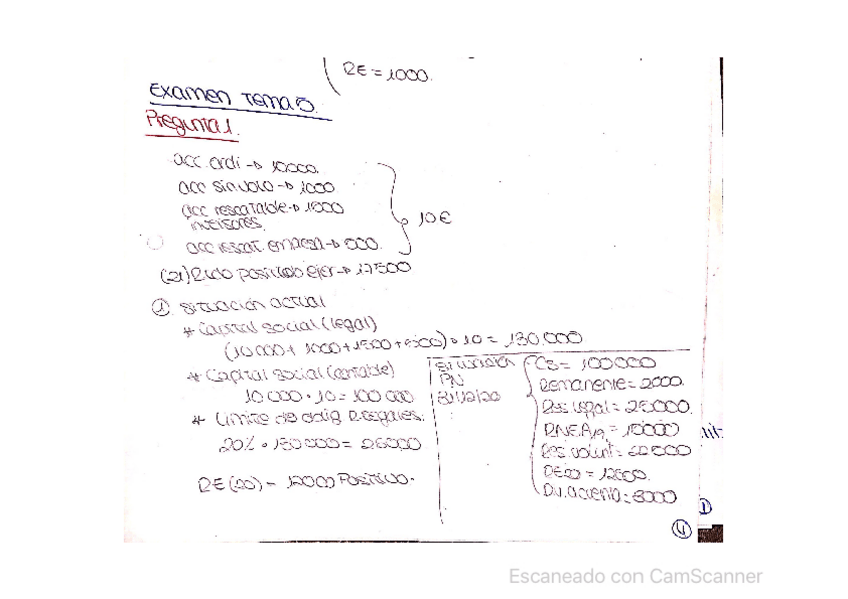 RE = 1000.
Examen Tema 5.
Pregunta 1.
acc. ordi → 10000.
acc sin voto → 1000
acc rescatable → 1500
inversores.
10€
acc rescat. empresa → 500.
(21) Rdo positivo ejer → 17500
① Situación actual
* Capital social (legal)
(10 000 + 1000 + 1500 + 500) · 10 = 130.000
* Capital social (contable)
10 000 · 10 = 100 000
* Límite de oblig R. legales:
20% · 130 000 = 26000
RE (20) = 12000 Positivo.
PN
31/12/20
CS = 100000
Remanente = 2000.
Res legal = 25000.
RNEA19 = 10000
Res volunt =
RE20 = 12000.
Div. a cuenta = 3000
④
Escaneado con CamScanner